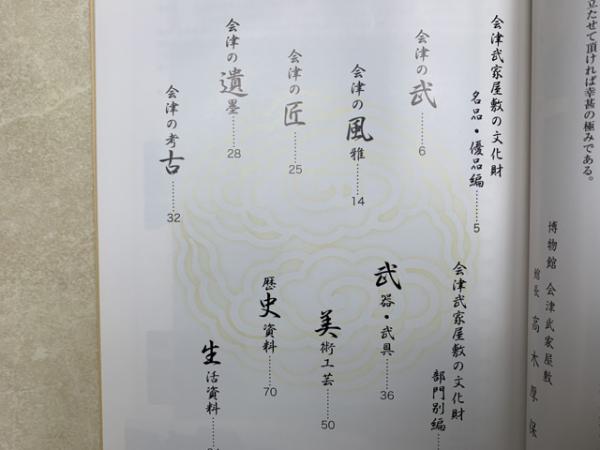 立たせて頂ければ幸甚の極みである。
博物館 会津武家屋敷
館長 高木厚保
会津武家屋敷の文化財
名品・優品編………5
会津の武………6
会津の風雅………14
会津の匠………25
会津の遺墨………28
会津の考古………32
会津武家屋敷の文化財
部門別編
武器・武具………36
美術工芸………50
歴史資料………70
生活資料